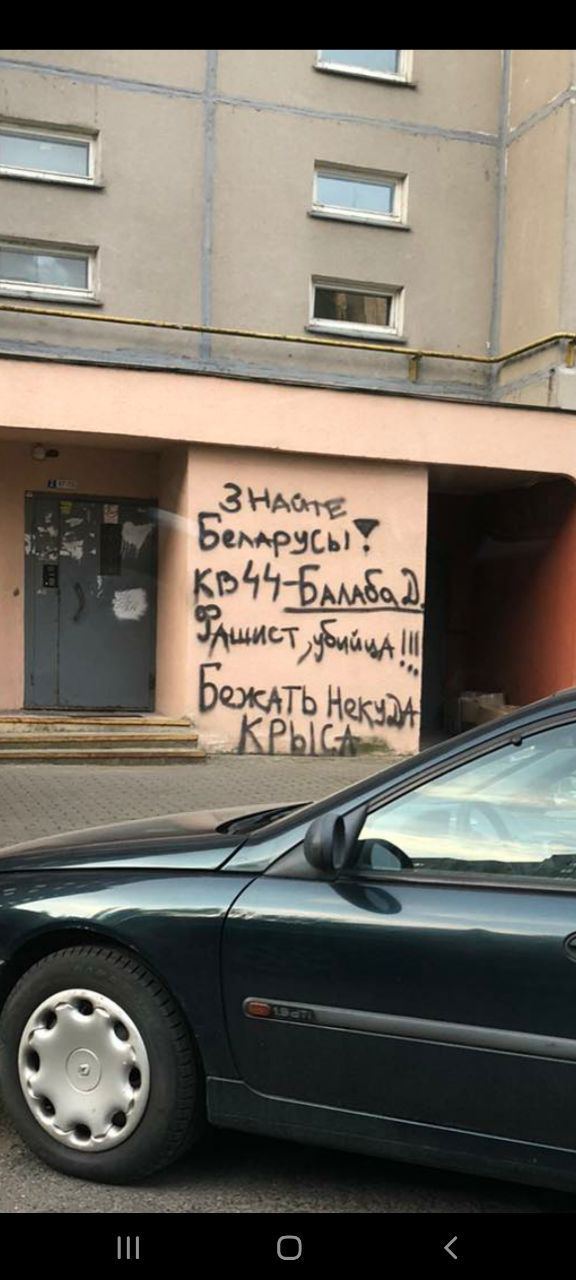 Знайте
Беларусы!
КВ44-Балаба Д.
Фашист, убийца!!!
Бежать некуда
КРЫСА
1.9 dTi